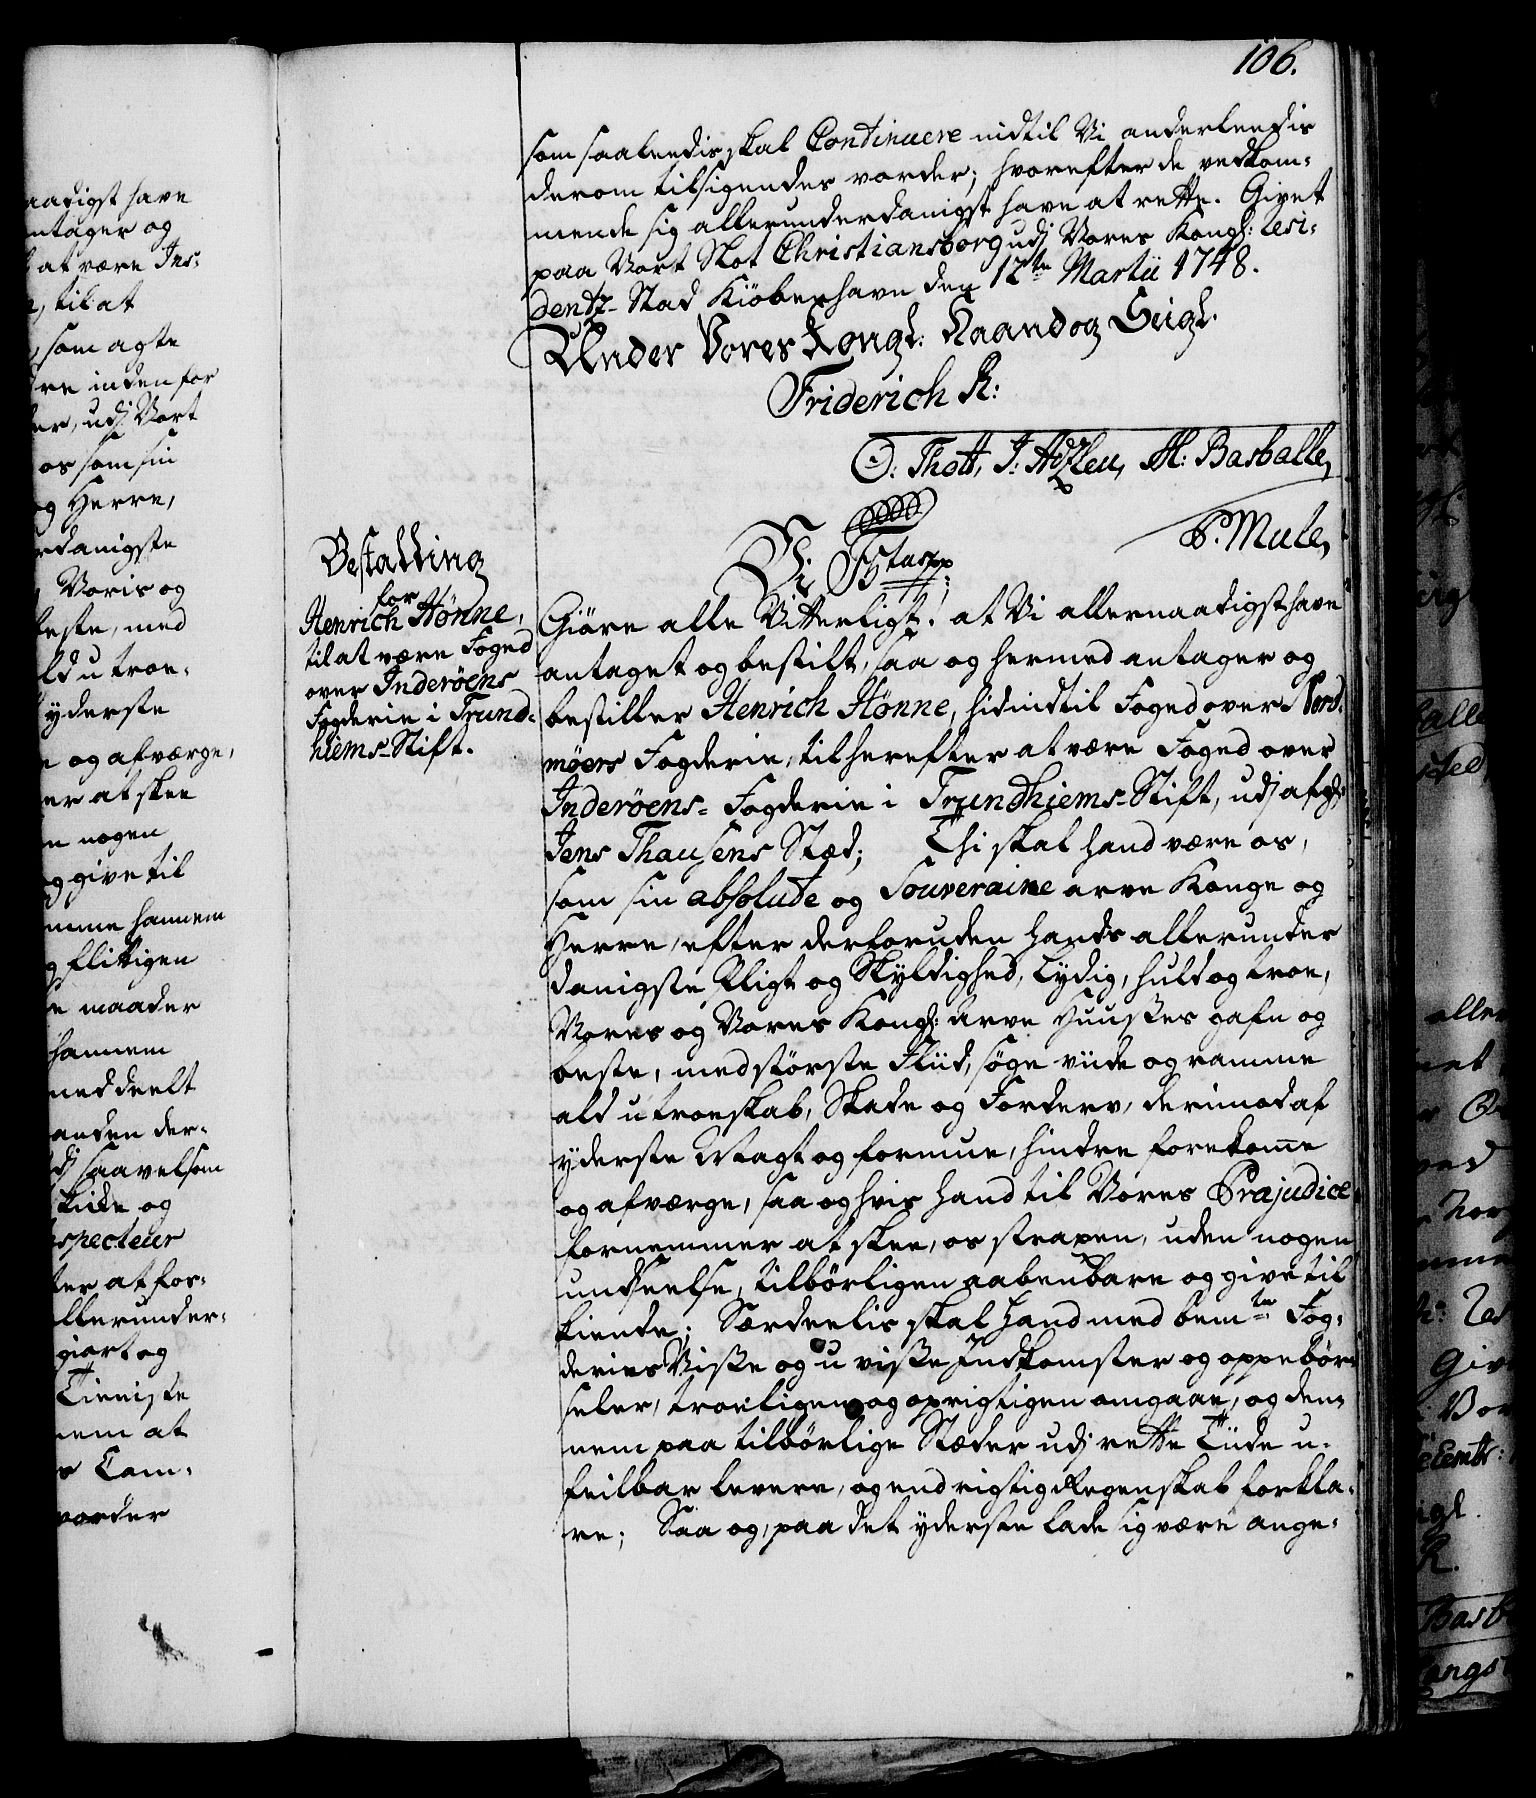 106.
som saaleedis skal Continuere indtil Vi anderleedis
derom tilsigendes vorder; hvorefter de vedkom-
mende sig allerunderdanigst have at rette. Givet
paa Vort Slot Christiansborg udj Vores Kongl: Resi-
dentz-Stad Kiöbenhavn den 12te Martii 1748.
Under Vores Kongl: Haand og Seigl.
Friderich R:
O: Thott, J: Adzleu, M: Basballe,
P. Mule,
Bestalling
for
Henrich Hønne,
til at være Foged
over Inderöens
Fogderie i Trund-
hiems-Stift.
Vi F5tus pp
Giöre alle Vitterligt: at Vi allernaadigst have
antaget og bestilt, saa og hermed antager og
bestiller Henrich Hønne, hidindtil Foged over Nord-
möers Fogderie, til herefter at være Foged over
Inderöens-Fogderie i Trundhiems-Stift, udj afg:
Jens Thausens Sted; Thi skal hand være os,
som sin absolute og Souveraine arve Konge og
Herre, efter derforuden hands allerunder
danigste Pligt og Skyldighed, lydig, huld og troe,
Vores og Vores Kongl: Arve Huuses gafn og
beste, med störste Fliid, söge viide og ramme
ald utroeskab, Skade og Forderv, derimod af
yderste Magt og formue, hindre forekomme
og afværge, saa og hvis hand til Vores Præjudice
fornemmer at skee, os straxen, uden nogen
undseelse, tilbörligen aabenbare og give til
kiende; Særdeelis skal hand med bemte Fog-
deries Visse og uvisse Indkomster og oppebör-
seler, troeligen og oprigtigen omgaae, og den-
nem paa tilbörlige Stæder udj rette Tiide u-
feilbar levere, og end rigtig Regenskab forkla-
re; Saa og, paa det yderste lade sig være ange-